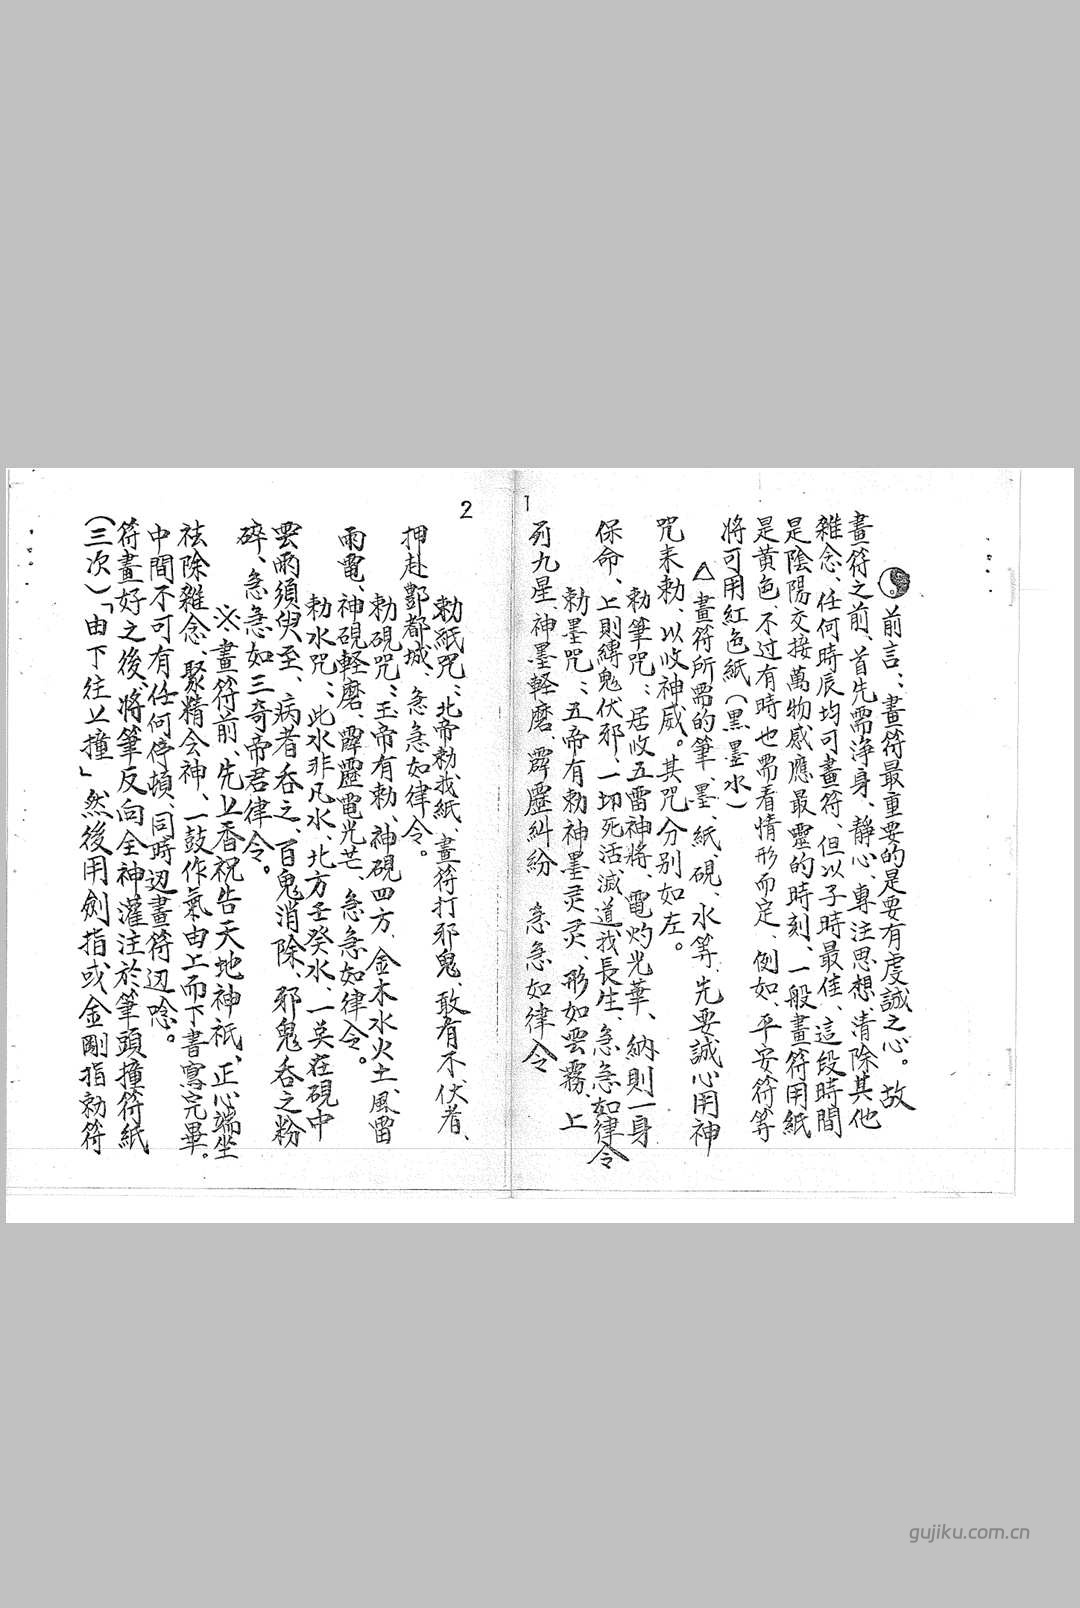 1
前言：畫符最重要的是要有虔誠之心。故
畫符之前、首先需淨身、靜心、專注思想、清除其他
雜念、任何時辰均可畫符、但以子時最佳、這段時間
是陰陽交接萬物感應最靈的時刻、一般畫符用紙
是黄色、不过有時也需看情形而定、例如、平安符等
將可用紅色紙（黑墨水）
△畫符所需的筆、墨、紙、硯、水等、先要誠心用神
咒来勅、以收神威。其咒分别如左。
勅筆咒：居收五雷神將、電灼光華、納則一身
保命、上則縛鬼伏邪、一切死活滅道我長生、急急如律令
勅墨咒：五帝有勅神墨灵灵、形如雲霧、上
列九星、神墨軽磨、霹靂糾紛 急急如律令
2
勅紙咒：北帝勅我紙、畫符打邪鬼、敢有不伏者、
押赴酆都城、急急如律令。
勅硯咒：玉帝有勅、神硯四方、金木水火土、風雷
雨電、神硯軽磨、霹靂電光芒、急急如律令。
勅水咒：此水非凡水、北方壬癸水、一英在硯中
雲雨須臾至、病者吞之、百鬼消除、邪鬼吞之粉
碎、急急如三奇帝君律令。
※畫符前、先上香祝告天地神祇、正心端坐
祛除雜念、聚精会神、一鼓作氣由上而下書寫完畢。
中間不可有任何停頓、同時辺畫符辺唸。
符畫好之後、將筆反向全神灌注於筆頭撞符紙
（三次）「由下往上撞」然後用劍指或金剛指勅符
gujiku.com.cn